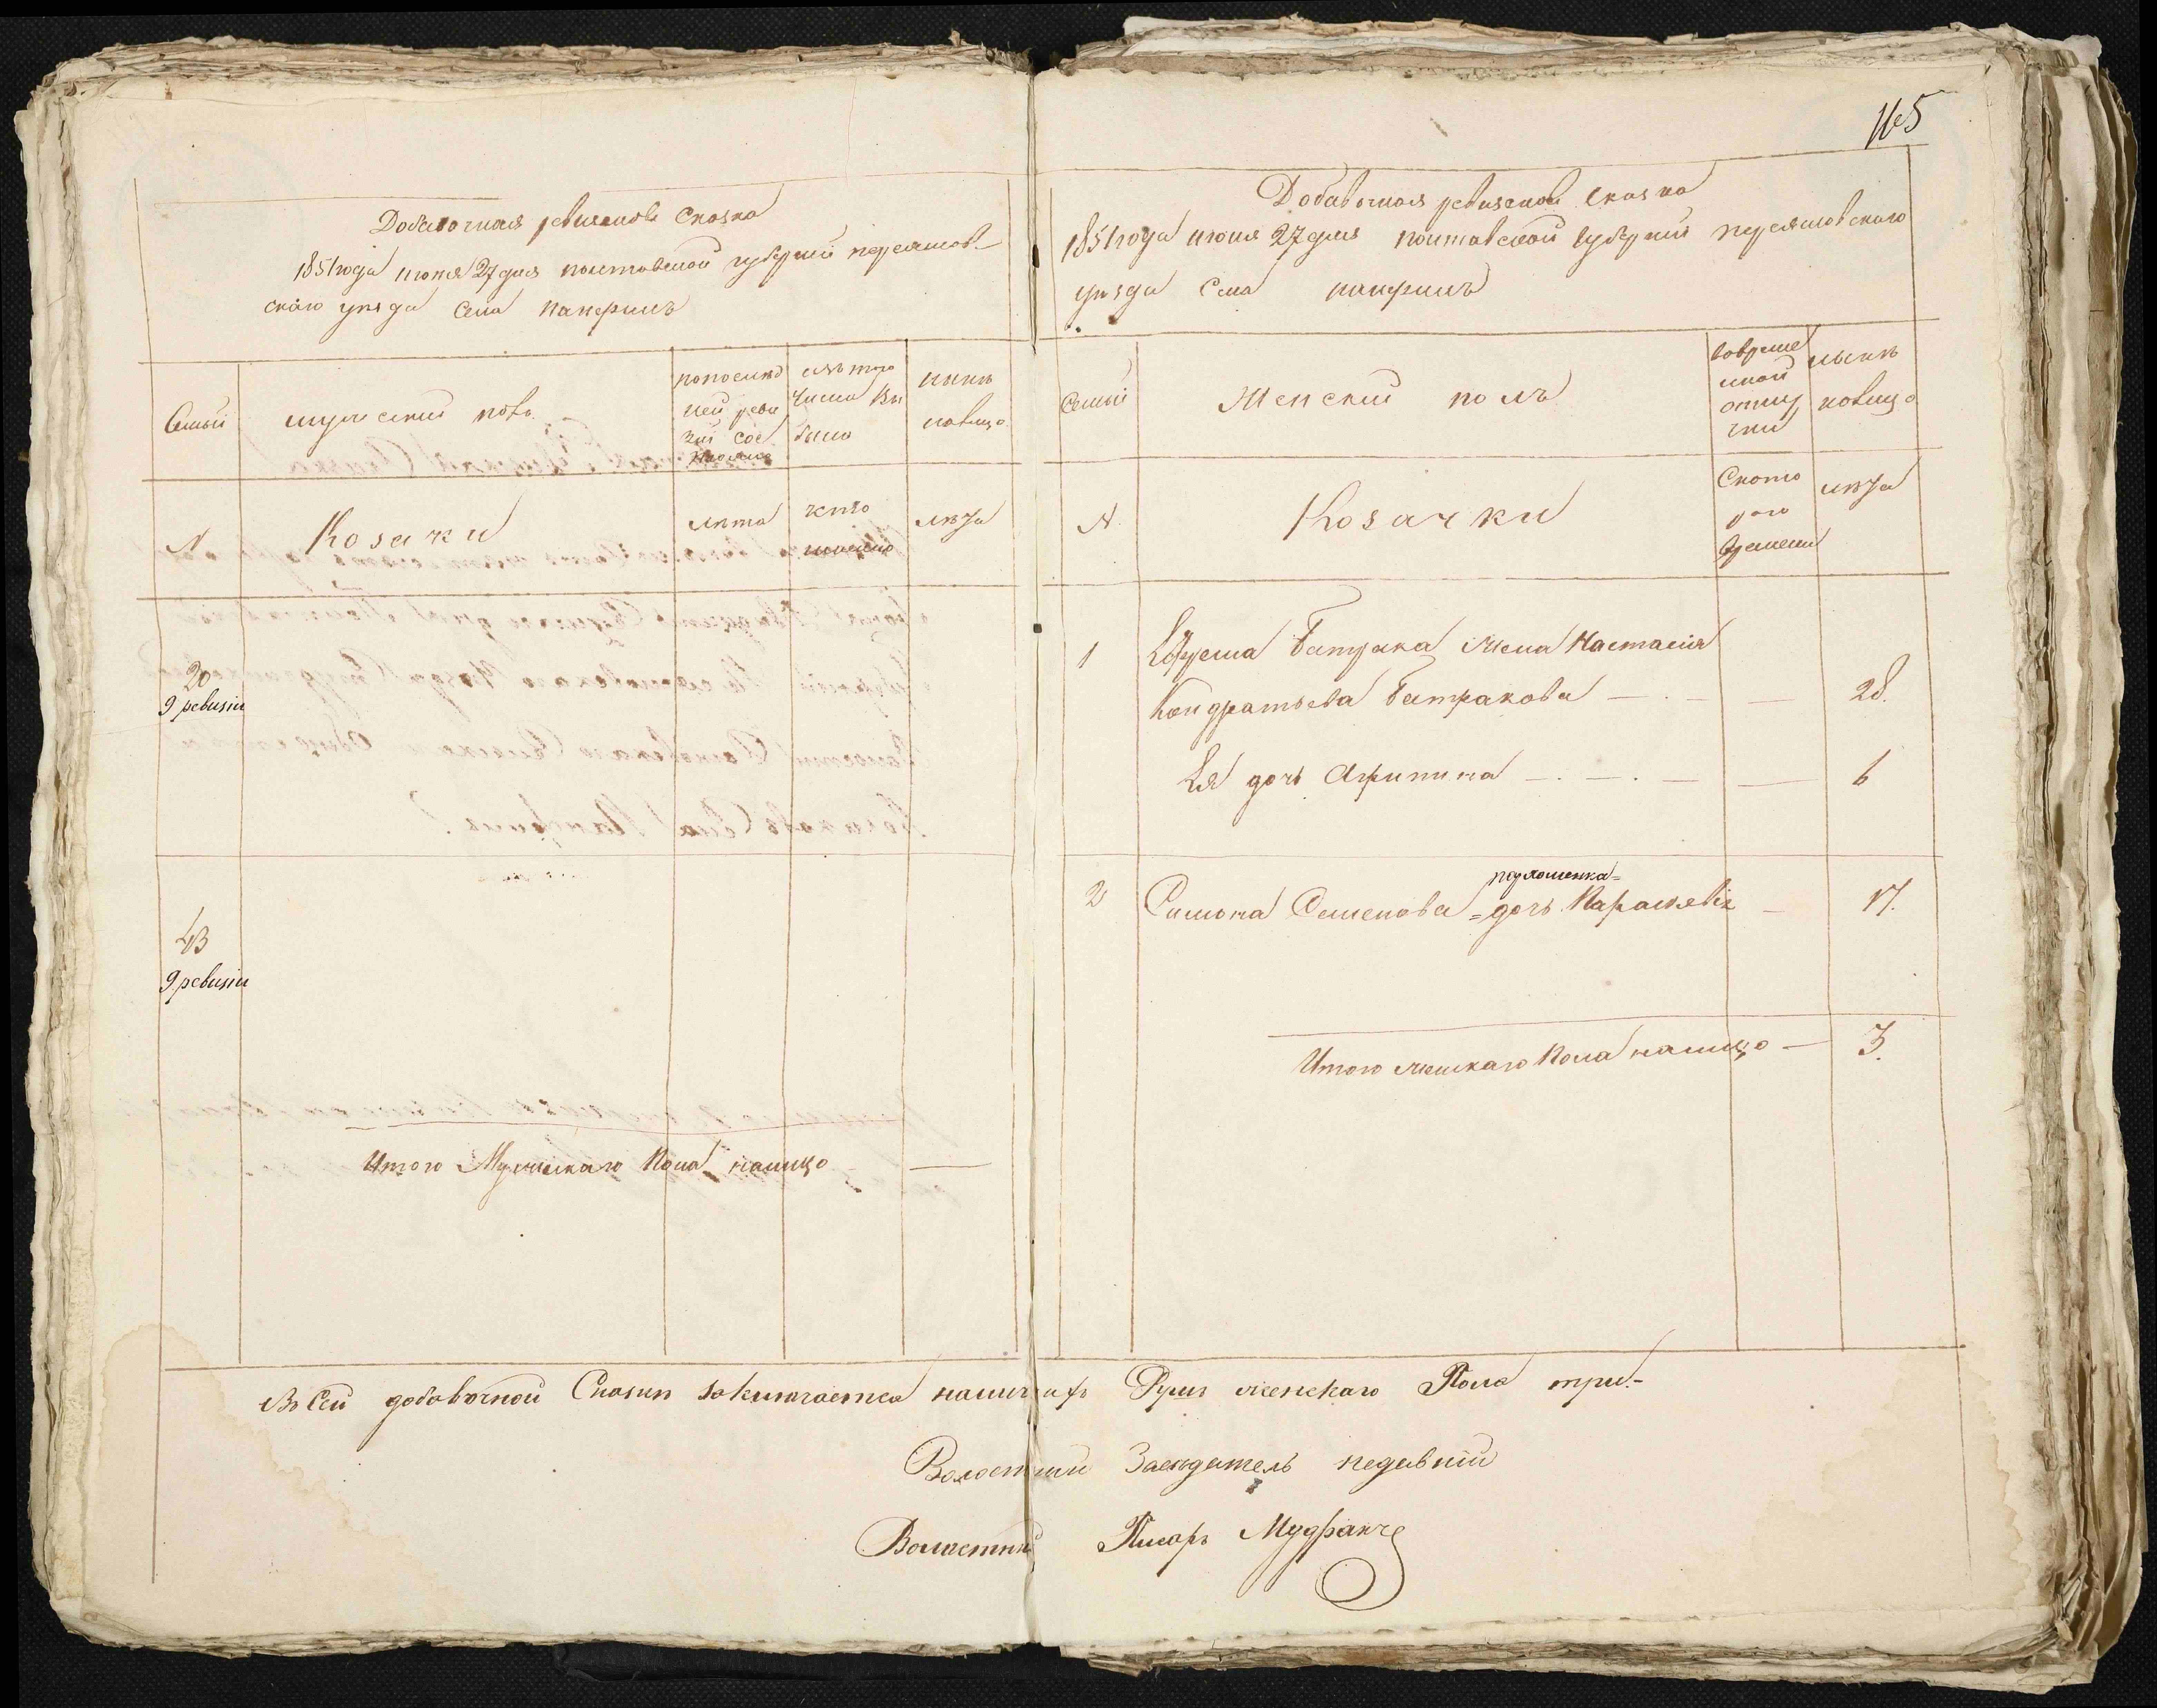 Добавочная ревизская сказка
1851 года июня 27 дня полтавской губернии переяслов-
скаго уѣзда села панфилъ
Семьи
мужеский полъ
по послѣд
ней реви
зии сос
тояло
изъ того
числа вы
было
нынѣ
налицо
N
Козаки
лѣта
когда
именно
лѣта
20
9 ревизіи
43
9 ревизіи
Итого Мужескаго Пола налицо —
165
Добавочная ревизская сказка
1851 года июня 27 дня полтавской губернии переясловскаго
уѣзда села панфилъ
Семьи
Женский полъ
во време
нной
отлу
чки
нынѣ
налицо
N
Козачки
С кото
раго
времени
лѣта
1
Ефрема Батрака жена Настасия
Кондратьева Батракова — 28.
Ея дочь Агрипина — 6
2
падчошенка=
Симона Семенова = дочь Параскевія — 17.
Итого женскаго Пола налицо — 3.
Въ сей добавочной Сказки заключается наличныхъ Душъ женскаго Пола три.=
Волостный Засѣдатель
Волостный Писарь